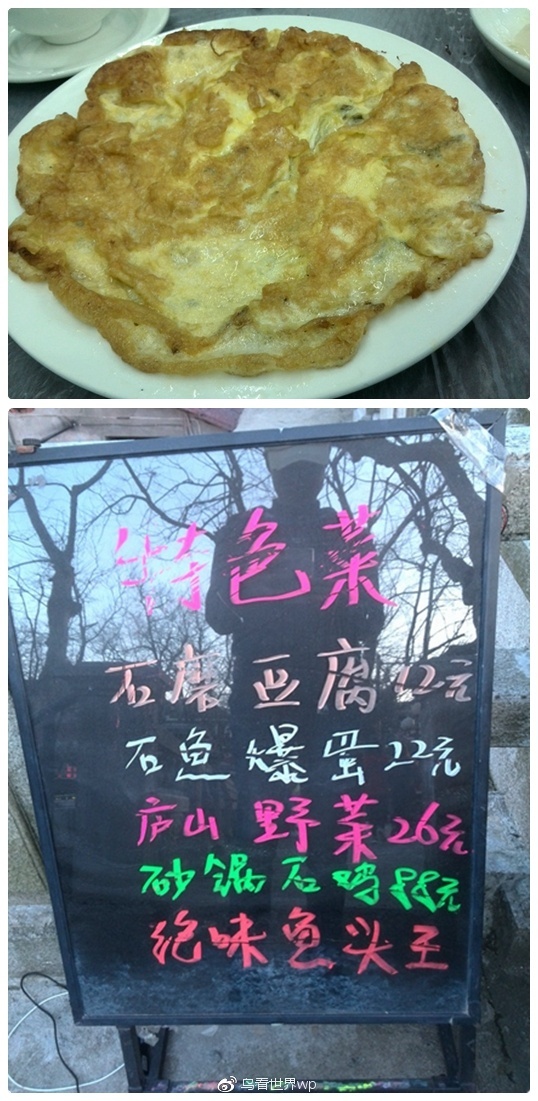 特色菜
石磨豆腐12元
石鱼爆蛋22元
庐山野菜26元
砂锅石鸡88元
绝味鱼头王
鸟看世界wp